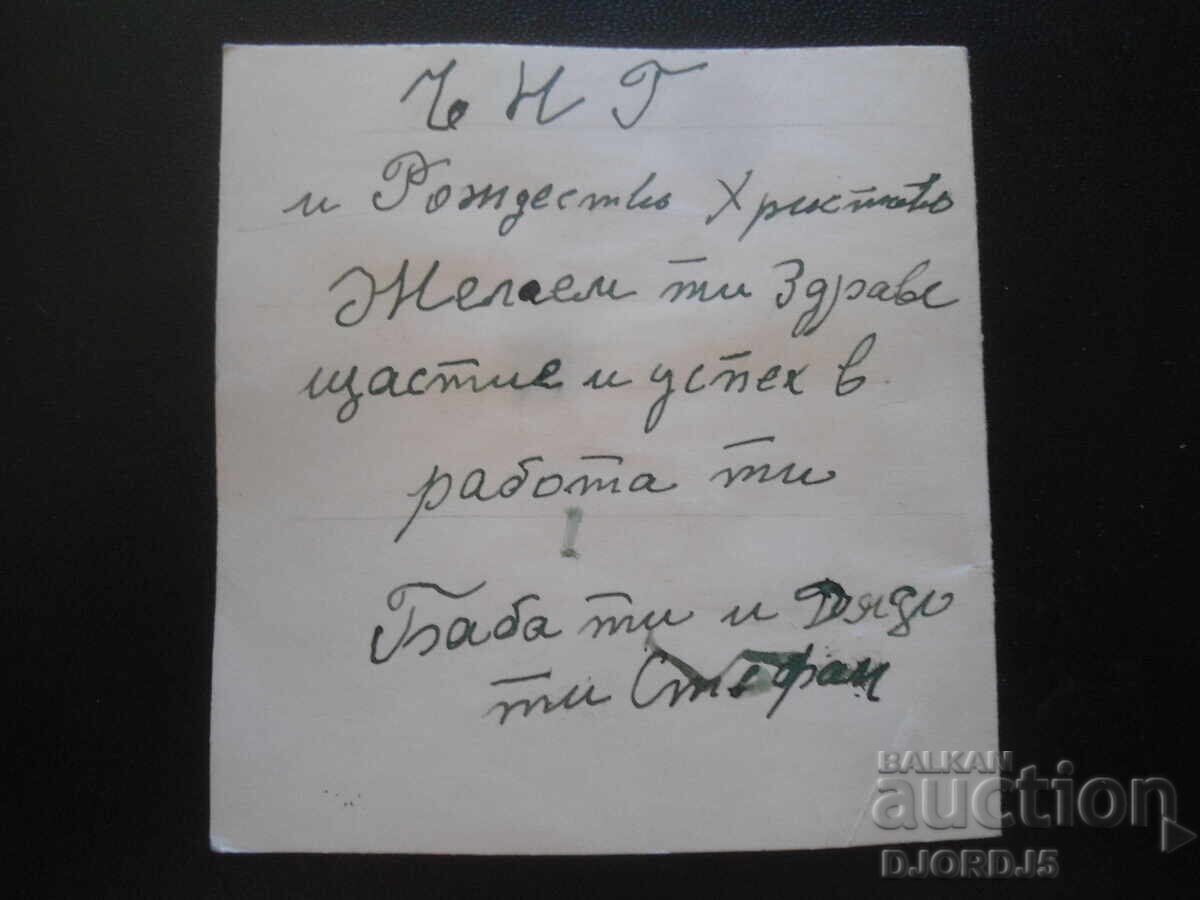 Ч Н Г
и Рождество Христово
Желаем ти Здраве
щастие и успех в
работа ти
!
Баба ти и Дядо
ти Стефан
BALKAN
auction
DJORDJ5